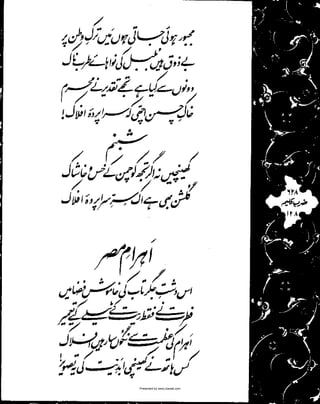 مجبور ہوئی جاتی ہوں میں ترکِ وطن پر
بے ذوق ہیں بلبل کی نوا ہائے طرب ناک
دونوں سے کیا ہے تجھے تقدیر نے محرم
خاکِ چمن اچھی کہ سراپردۂ افلاک!
شبنم
کھینچیں نہ اگر تجھ کو چمن کے خس و خاشاک
گلشن بھی ہے اک سرِّ سراپردۂ افلاک
اہرامِ مصر
اس دشتِ جگر تاب کی خاموش فضا میں
فطرت نے فقط ریت کے ٹیلے کیے تعمیر
اہرام کی عظمت سے نگوں سار ہیں افلاک
کس ہاتھ نے کھینچی ابدیت کی یہ تصویر!
۶۲۸
ضربِ کلیم
۱۲۸